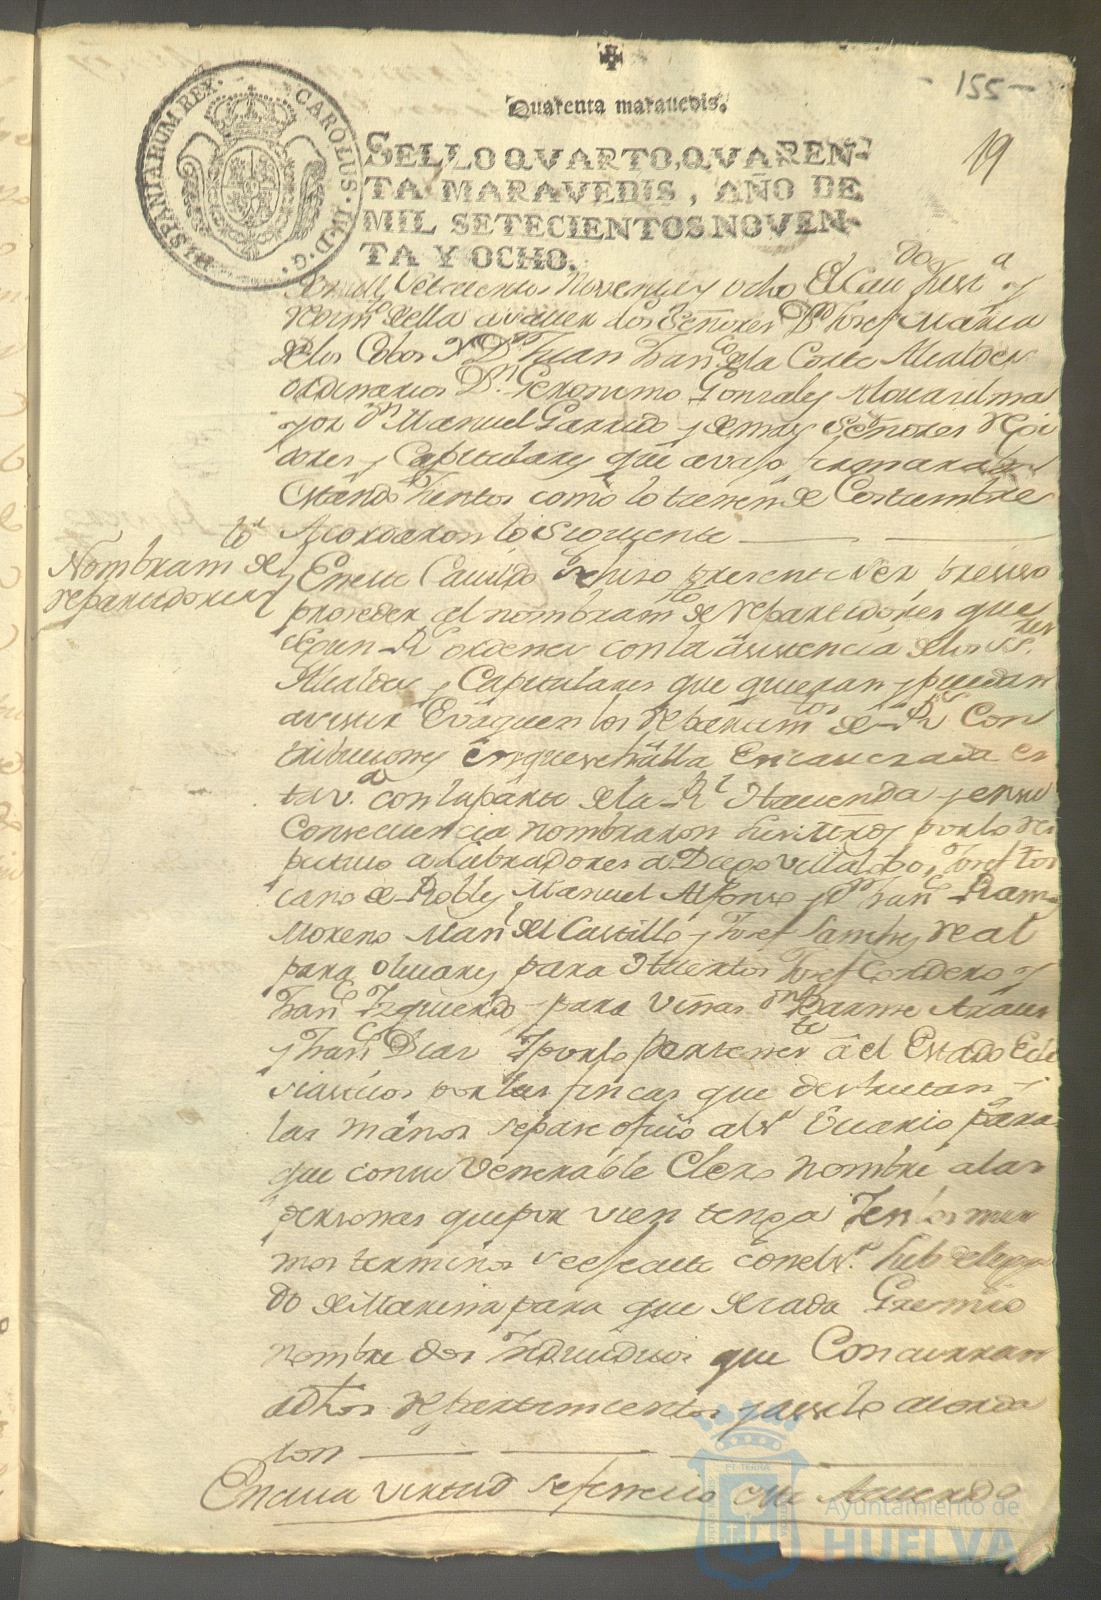 - 155 -
19
Quarenta maravedis.
HISPANIARUM REX. CAROLUS. IV. D. G.
SELLO QVARTO, QVAREN-
TA MARAVEDIS, AÑO DE
MIL SETECIENTOS NOVEN-
TA Y OCHO.
Setecientos Noventa y ocho El Cav. Just.ª y
Regim.to della a saver los Señores Dn Josef Maria
de los Cobos y Dn Juan Fran.co de la Corte Alcaldes
ordinarios Dn Geronimo Gonzalez Alguasil ma
yor Dn Manuel Garrido y demas Señores Regi
dores y Capitulares que avajo firmaran
Estando Juntos como lo tienen de Costumbre
Acordaron lo Siguiente
Nombram.to de
repartidores
En este Cavildo se hiso presente ser presiso
proseder al nombram.to de repartidores que
segun R.s ordenes con la asistencia de los SS.res
Alcaldes y Capitulares que quieran y puedan
asistir Evaquen los repartim.tos de R.s Con
tribuciones en que se halla Encavesada es
ta v.ª con la parte de la R.l Hacienda y en su
Consecuencia nombraron sus mrds por lo res
pectivo a Labradores a Diego Villalobo, Josef Tos
cano de Robles Manuel Alfonso y Dn Fran.co Ram.
Moreno Man.l del Castillo y Josef Sanches Real
para olivares para Huertos Josef Cordero y
Fran.co Izquierdo para viñas Dn
y Fran.co Diaz Y por lo pertenec.te a el Estado Ecle
siastico por las fincas que desfrutan y
las manos se pase oficio al S.r Vicario para
que con su Venerable Clero nombre a las
personas que por vien tenga Y en los mis
mos terminos se efecute con el S.r Subdelega
do de Marina para que de cada Gremio
nombre dos Individuos que Concurran
a dhos repartimientos y asi lo acorda
ron
En cuia virtud se feneció este Acuerdo
ET TERRA
Ayuntamiento de
HUELVA